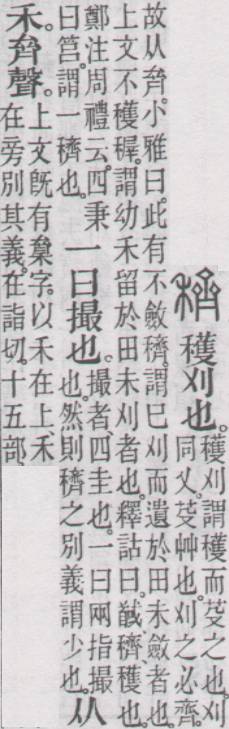 穧 穫刈也。
穫刈謂穫而芟之也。刈
同乂。芟艸也。刈之必齊。
故从齊。小雅曰。此有不斂穧。謂已刈而遺於田未斂者也。
上文不穫穉。謂幼禾留於田未刈者也。釋詁曰。馘、穧、穫也。
鄭注周禮云。四秉
曰筥。謂一穧也。
一曰撮也。
撮者、四圭也。一曰兩指撮
也。然則穧之別義謂少也。
从
禾齊聲。
上文旣有字。以禾在上禾
在旁別其義。在詣切。十五部。